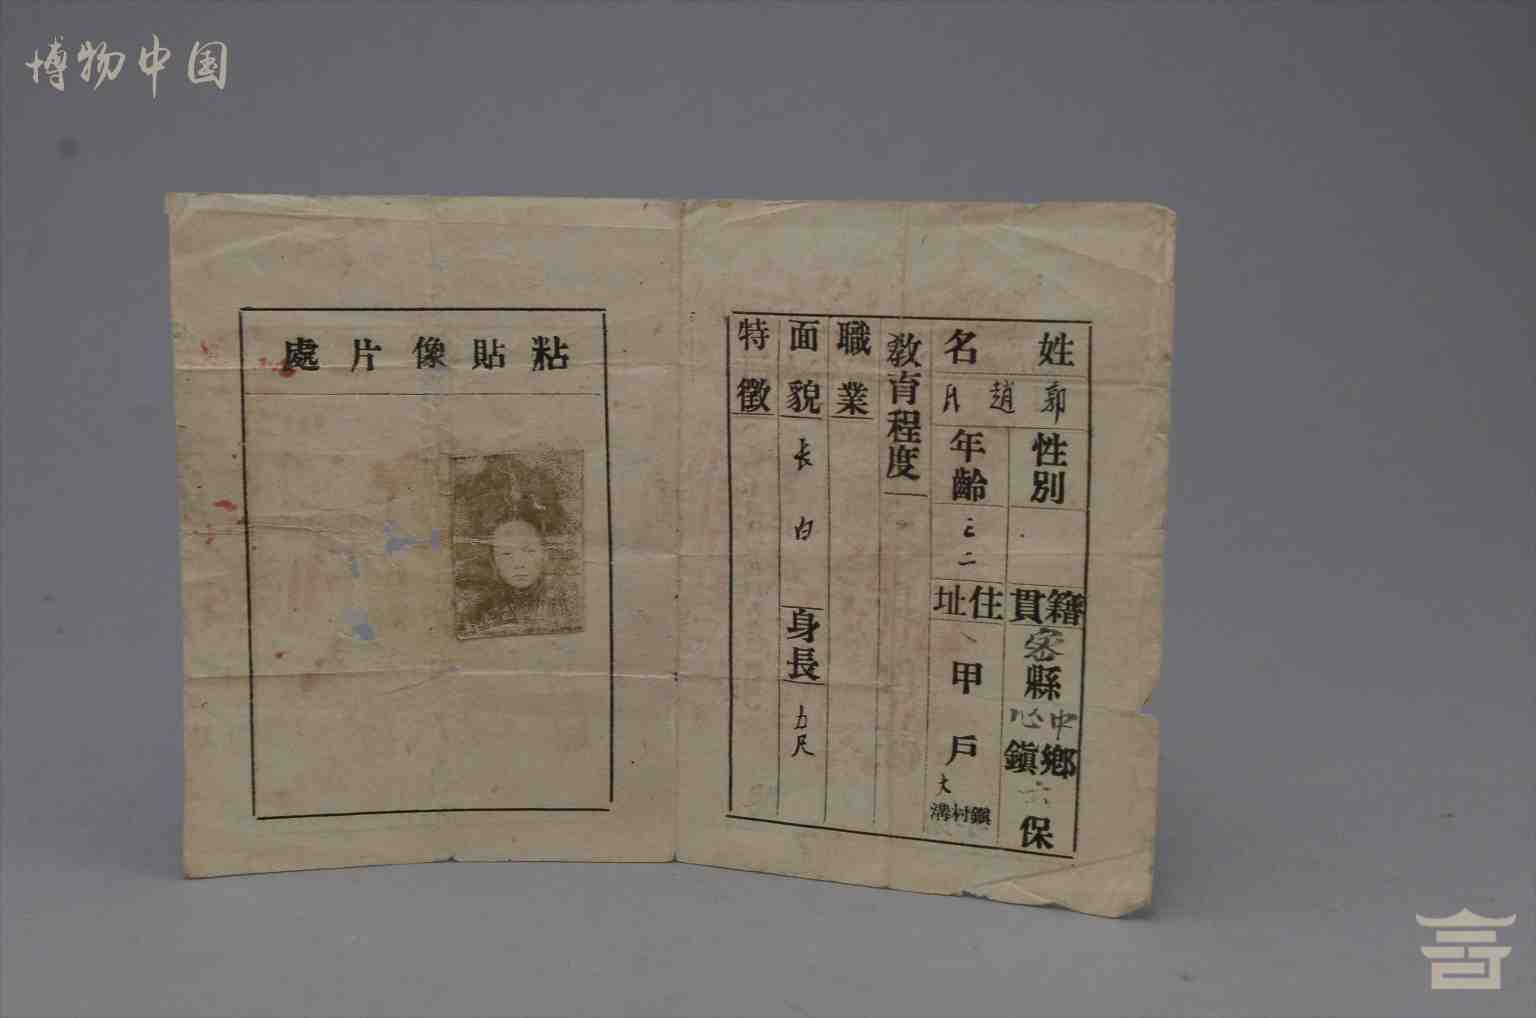 博物中国
姓名
郭趙氏
性別
年齡
三二
籍貫
密縣
中心
鄉鎮
六保
住址
甲
戶
大
鎮村溝
教育程度
職業
面貌
長白
身長
五尺
特徵
粘貼像片處